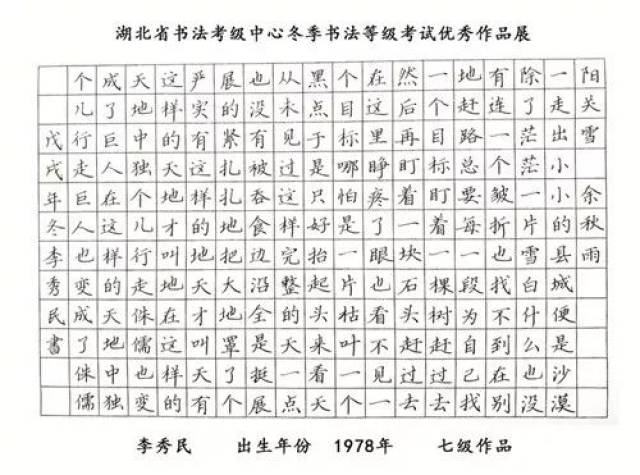 湖北省书法考级中心冬季书法等级考试优秀作品展
阳关雪 余秋雨
一走出小小的县城便是沙漠
除了茫茫一片雪白什么也没
有连一个皱折也找不到在别
地赶路总要每一段为自己找
一个目标盯着一棵树赶过去
然后再盯着一块石头赶过去
在这里睁疼了眼也看不见一
个目标哪怕是一片枯叶一个
黑点于是只好抬起头来看天
从未见过这样完整的天一点
也没有被吞食边沿全是挺展
展的紧扎扎地把大地罩了个
严实有这样的地天才叫天有
这样的天地才叫地在这样的
天地中独个儿行走侏儒也变
成了巨人在这样的天地中独
个儿行走巨人也变成了侏儒
戊戌年冬李秀民書
李秀民 出生年份 1978年 七级作品